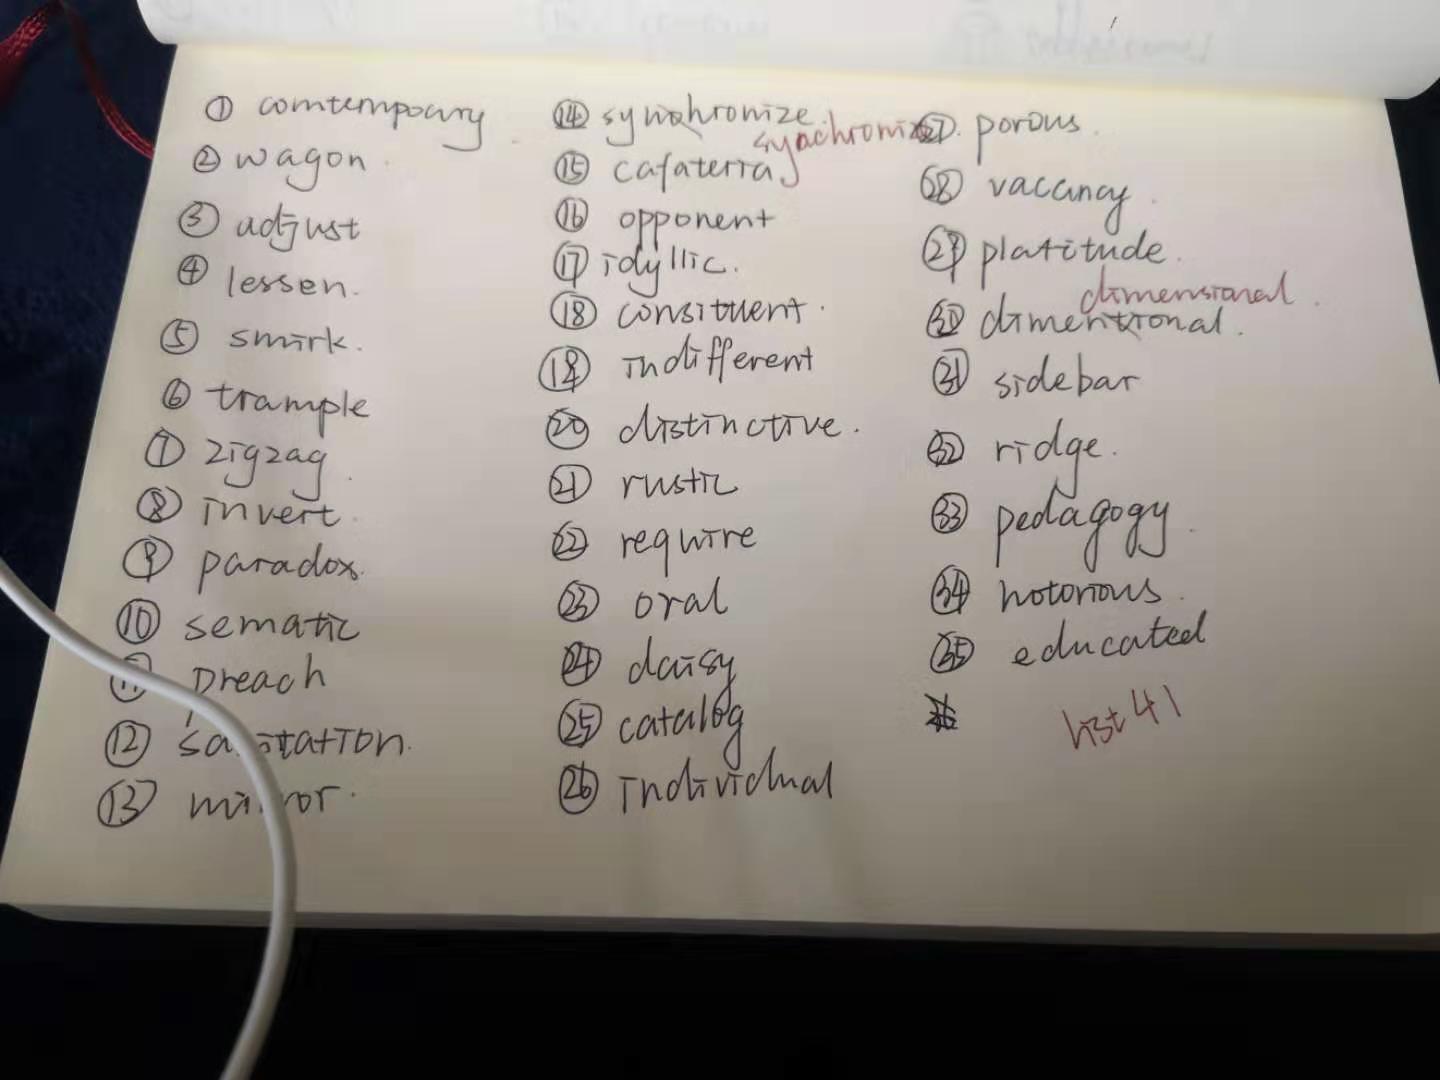 ① comtempoary
② wagon
③ adjust
④ lessen.
⑤ smirk.
⑥ trample
⑦ zigzag.
⑧ invert.
⑨ paradox.
⑩ sematic
⑪ preach
⑫ sanitation.
⑬ mirror.
⑭ synchronize.
synachronize
⑮ cafaterra
⑯ opponent
⑰ idyllic.
⑱ consituent.
⑲ indifferent
⑳ distinctive.
㉑ rustic
㉒ require
㉓ oral
㉔ daisy
㉕ catalog
㉖ individual
㉗ porous.
㉘ vacancy.
㉙ platitude.
dimensional.
㉚ dimentional.
㉛ sidebar
㉜ ridge.
㉝ pedagogy.
㉞ notorious.
㉟ educated
list 41